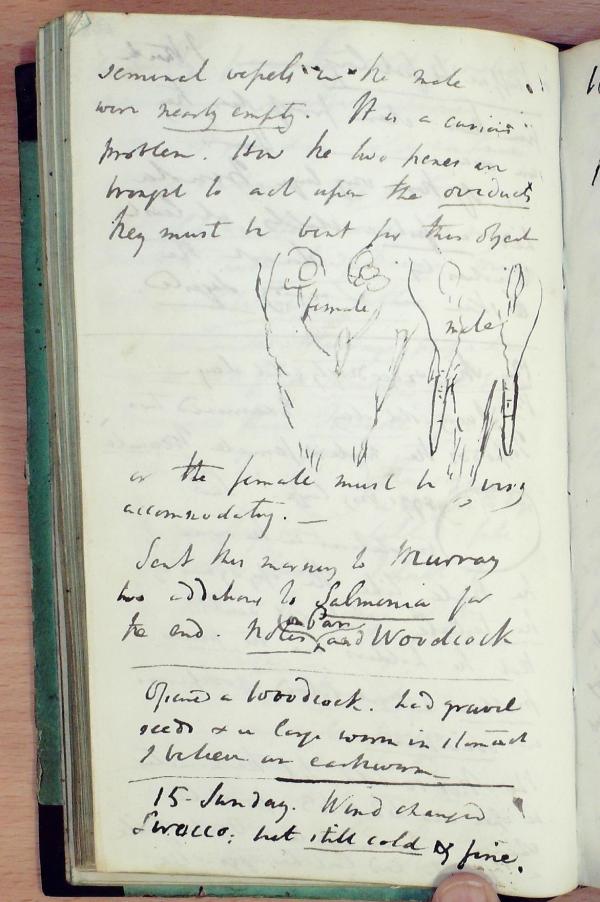 seminal vessels in the male
were nearly empty. It is a curious
problem. How the two penes are
brought to act upon the oviducts
they must be bent for this object
female
male
or the female must be very
accommodating. —
Sent this morning to Murray
two additions to Salmonia for
on Parr
the end. Notes and Woodcock
Opened a Woodcock. had gravel
seeds & a large worm in stomach
I believe an earthworm
15 - Sunday. Wind changed
Sirocco; but still cold & fine.